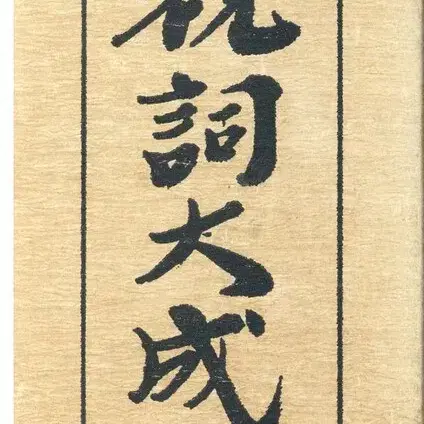 祝詞大成